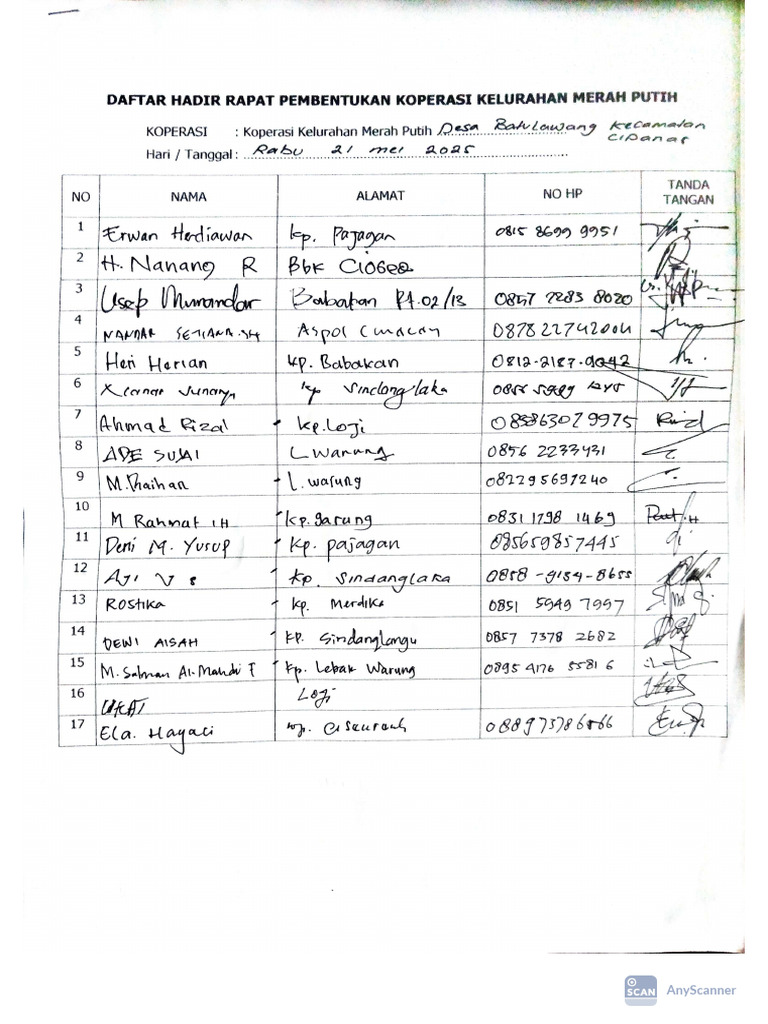 DAFTAR HADIR RAPAT PEMBENTUKAN KOPERASI KELURAHAN MERAH PUTIH
KOPERASI : Koperasi Kelurahan Merah Putih Desa Batulawang Kecamatan Cipanas
Hari / Tanggal : Rabu 21 mei 2025
NO NAMA ALAMAT NO HP TANDA TANGAN
1 Erwan Herdiawan kp. Pajagan 0815 8699 9951
2 H. Nanang R Bbk
3 Usep Munandar Babakan Rt.02/13 0857 2283 8020
4 NANDAR SETIANA.SH Aspol Cimacan 087822742004
5 Heri Herian kp. Babakan 0812-2187-9042
6 kp Sindanglaka
7 Ahmad Rizal kp. Loji 085863079975
8 ADE L warung 0856 2233431
9 M. Raihan L. warung 082295691240
10 M Rahmat I.H kp. garung 0831 1798 1469
11 Deni M. Yusup kp. pajagan 085659857445
12 AJI kp. Sindanglaka 0858-9134-8655
13 ROSTIKA kp. Merdika 0851 5949 7997
14 DEWI AISAH kp. Sindanglangu 0857 7378 2682
15 M. Salman Al-Mahdi F kp. Lebak Warung 0895 4176 5581 6
16 Loji
17 Ela. Hayati kp.
SCAN AnyScanner